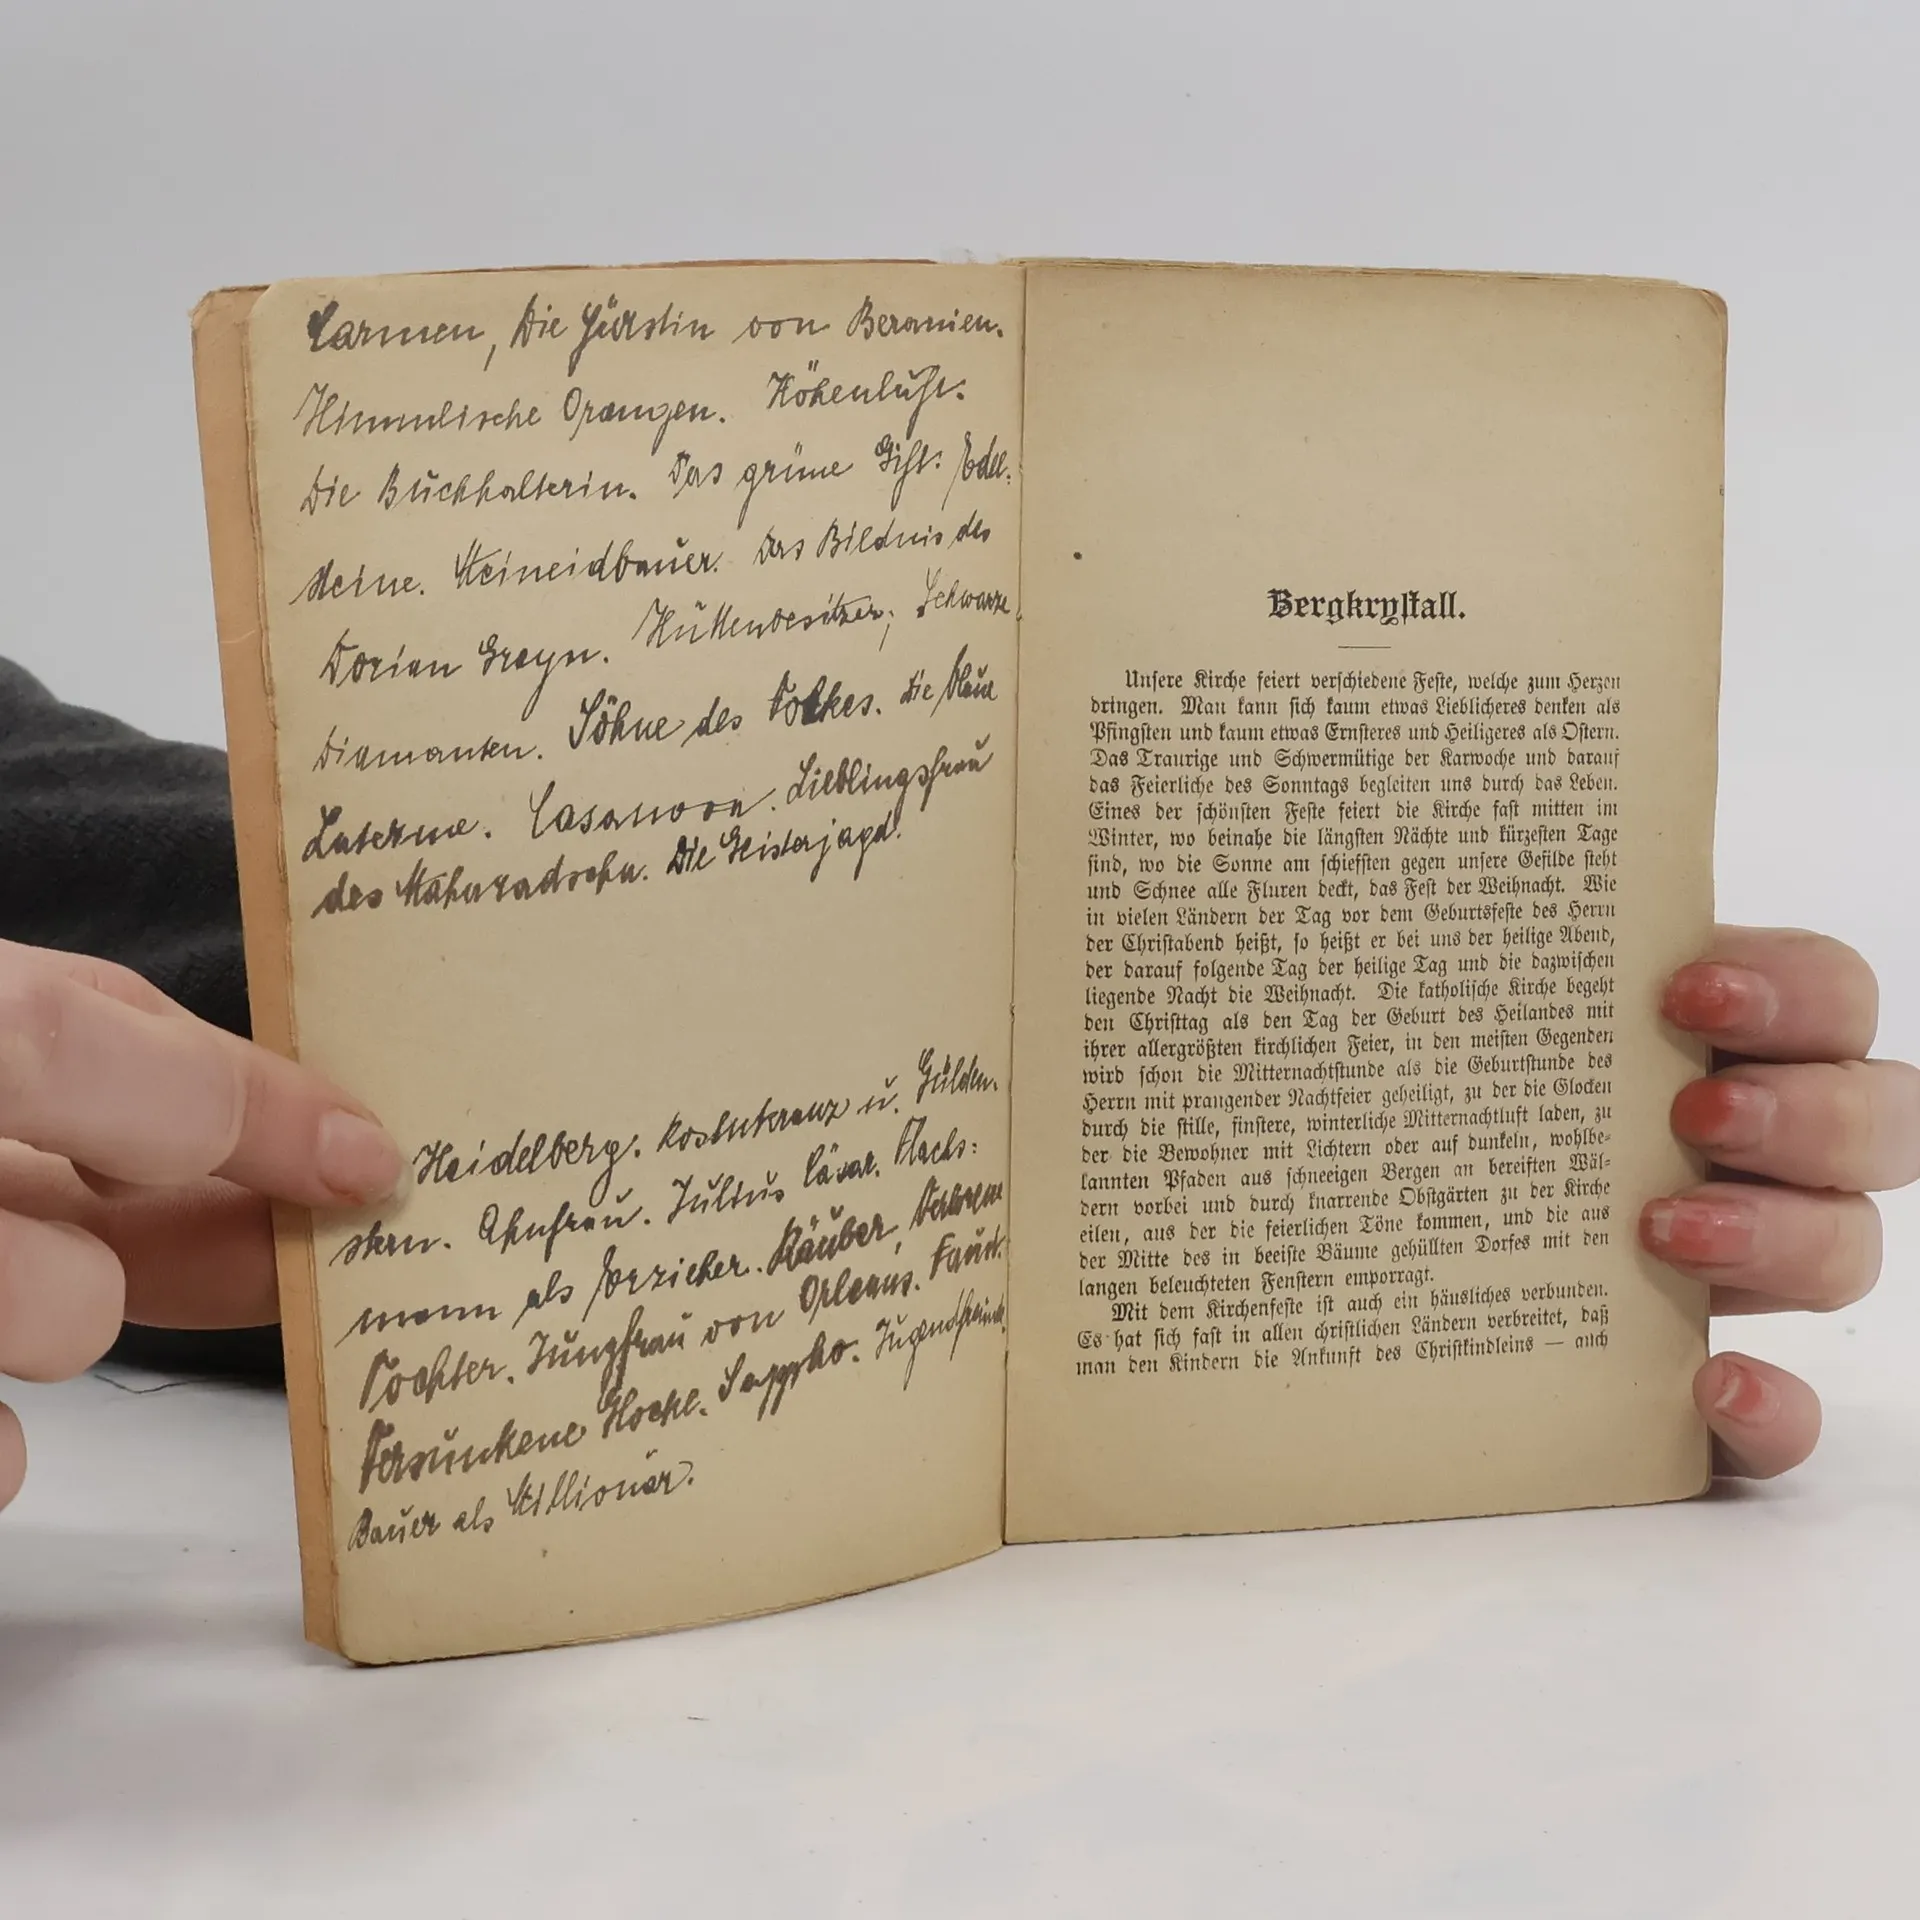 Carmen, Die Fürstin von Beranien.
Himmlische Orangen. Höhenluft.
Die Buchhalterin. Das grüne Gift. Edel-
steine. Meineidbauer. Das Bildnis des
Dorian Grayn. Hüttenbesitzer, Schwarze
Diamanten. Söhne des Volkes. Die blaue
Laterne. Casanova. Lieblingsfrau
des Maharadscha. Die Geisterjagd.
Heidelberg. Rosenkranz u. Gülden-
stern. Ahnfrau. Julius Cäsar. Flachs-
mann als Erzieher. Räuber, Verlorene
Tochter. Jungfrau von Orleans. Faust.
Versunkene Glocke. Sappho. Jugendfreunde.
Bauer als Millionär.
Bergkrystall.
Unsere Kirche feiert verschiedene Feste, welche zum Herzen
dringen. Man kann sich kaum etwas Lieblicheres denken als
Pfingsten und kaum etwas Ernsteres und Heiligeres als Ostern.
Das Traurige und Schwermütige der Karwoche und darauf
das Feierliche des Sonntags begleiten uns durch das Leben.
Eines der schönsten Feste feiert die Kirche fast mitten im
Winter, wo beinahe die längsten Nächte und kürzesten Tage
sind, wo die Sonne am schiefsten gegen unsere Gefilde steht
und Schnee alle Fluren deckt, das Fest der Weihnacht. Wie
in vielen Ländern der Tag vor dem Geburtsfeste des Herrn
der Christabend heißt, so heißt er bei uns der heilige Abend,
der darauf folgende Tag der heilige Tag und die dazwischen
liegende Nacht die Weihnacht. Die katholische Kirche begeht
den Christtag als den Tag der Geburt des Heilandes mit
ihrer allergrößten kirchlichen Feier, in den meisten Gegenden
wird schon die Mitternachtstunde als die Geburtstunde des
Herrn mit prangender Nachtfeier geheiligt, zu der die Glocken
durch die stille, finstere, winterliche Mitternachtluft laden, zu
der die Bewohner mit Lichtern oder auf dunkeln, wohlbe-
kannten Pfaden aus schneeigen Bergen an bereiften Wäl-
dern vorbei und durch knarrende Obstgärten zu der Kirche
eilen, aus der die feierlichen Töne kommen, und die aus
der Mitte des in beeiste Bäume gehüllten Dorfes mit den
langen beleuchteten Fenstern emporragt.
Mit dem Kirchenfeste ist auch ein häusliches verbunden.
Es hat sich fast in allen christlichen Ländern verbreitet, daß
man den Kindern die Ankunft des Christkindleins — auch